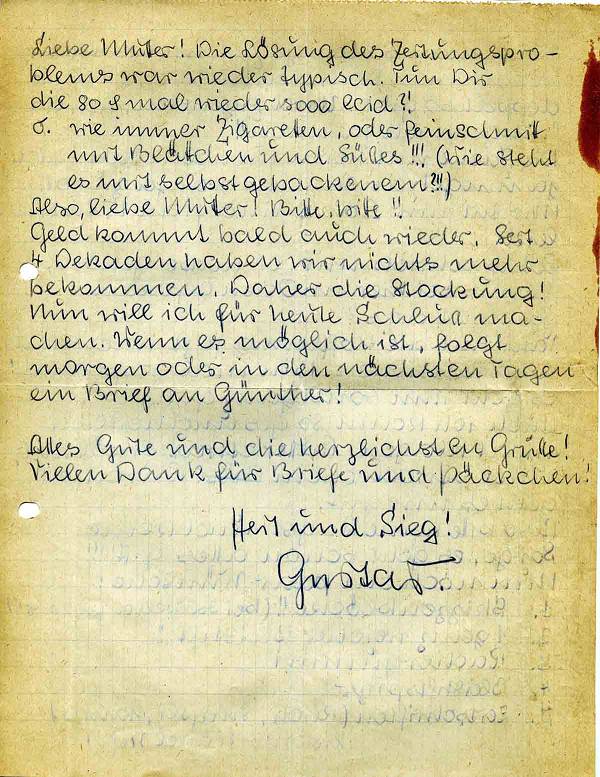 Liebe Mutter! Die Lösung des Zeitungspro-
blems war wieder typisch. Tun Dir
die 80 § mal wieder sooo leid?!
6. wie immer Zigareten, oder Feinschnitt
mit Blätchen und Süßes!!! (Wie steht
es mit selbstgebackenem?!!)
Also, liebe Mutter! Bitte, bitte!!
Geld kommt bald auch wieder. Seit
4 Dekaden haben wir nichts mehr
bekommen. Daher die Stockung!
Nun will ich für heute Schluß ma-
chen. Wenn es möglich ist, folgt
morgen oder in den nächsten Tagen
ein Brief an Günther!
Alles Gute und die herzlichsten Grüße!
Vielen Dank für Briefe und Päckchen!
Heil und Sieg!
Gustav.